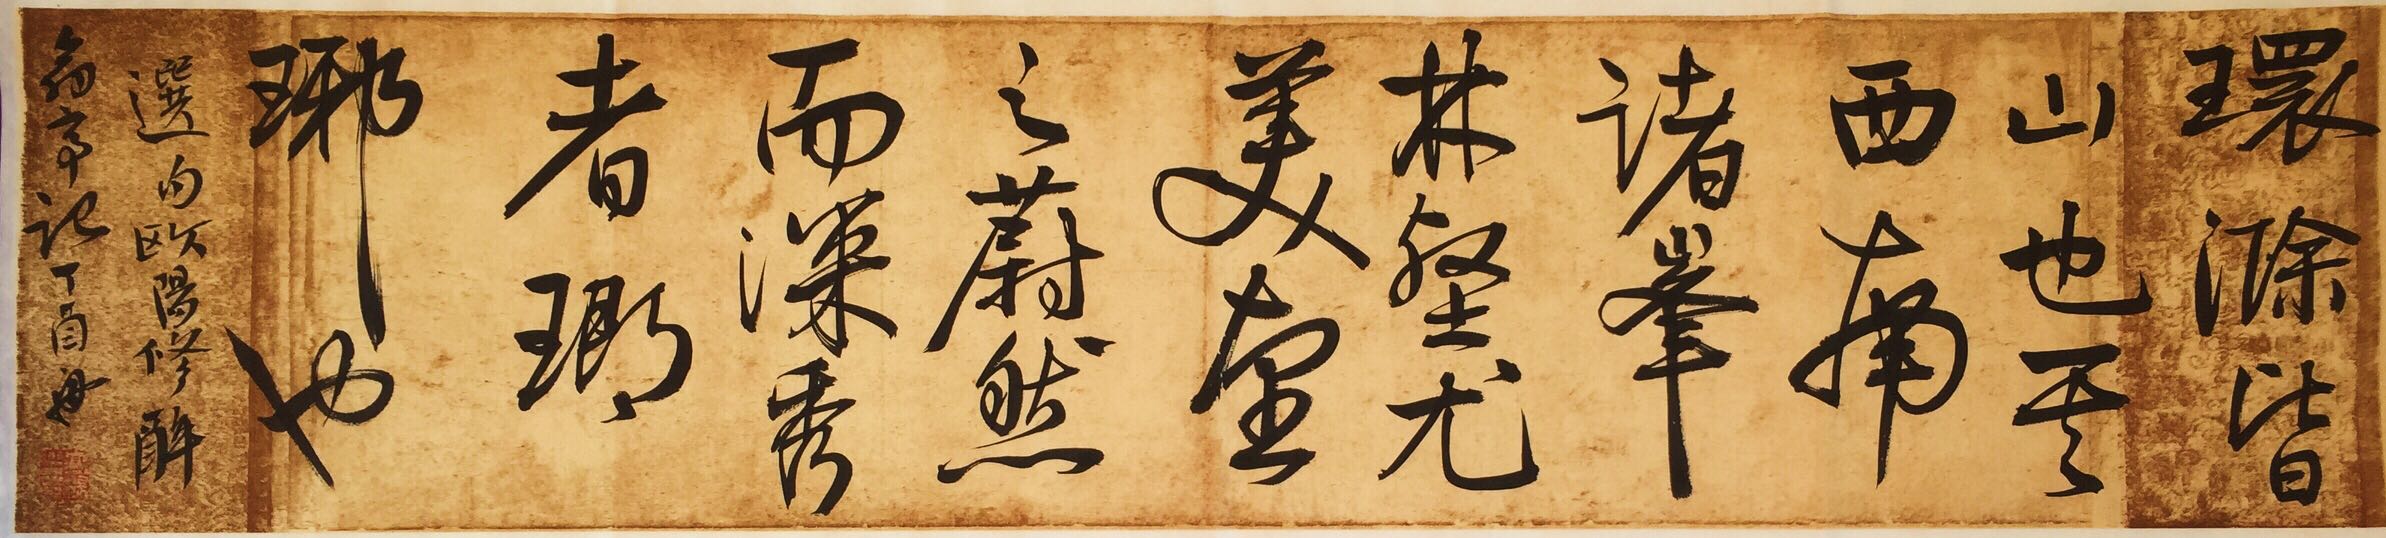 環滁皆
山也其
西南
諸峯
林壑尤
美望
之蔚然
而深秀
者瑯
琊也
選自歐陽修醉
翁亭記丁酉